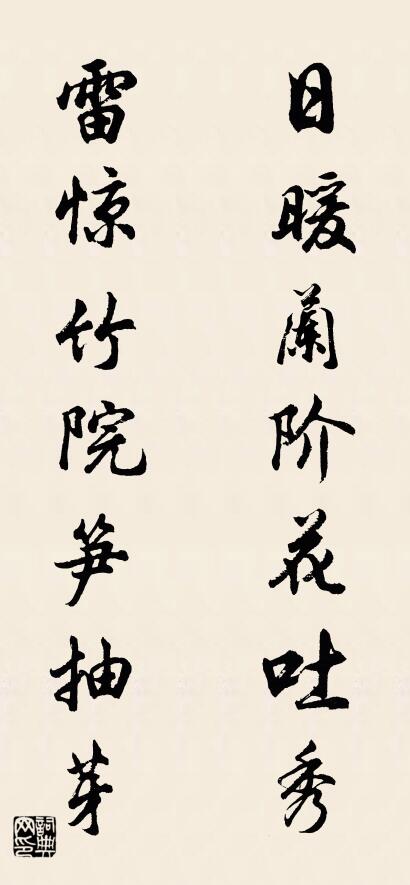 日暖蘭阶花吐秀
雷惊竹院笋抽芽
词典网印